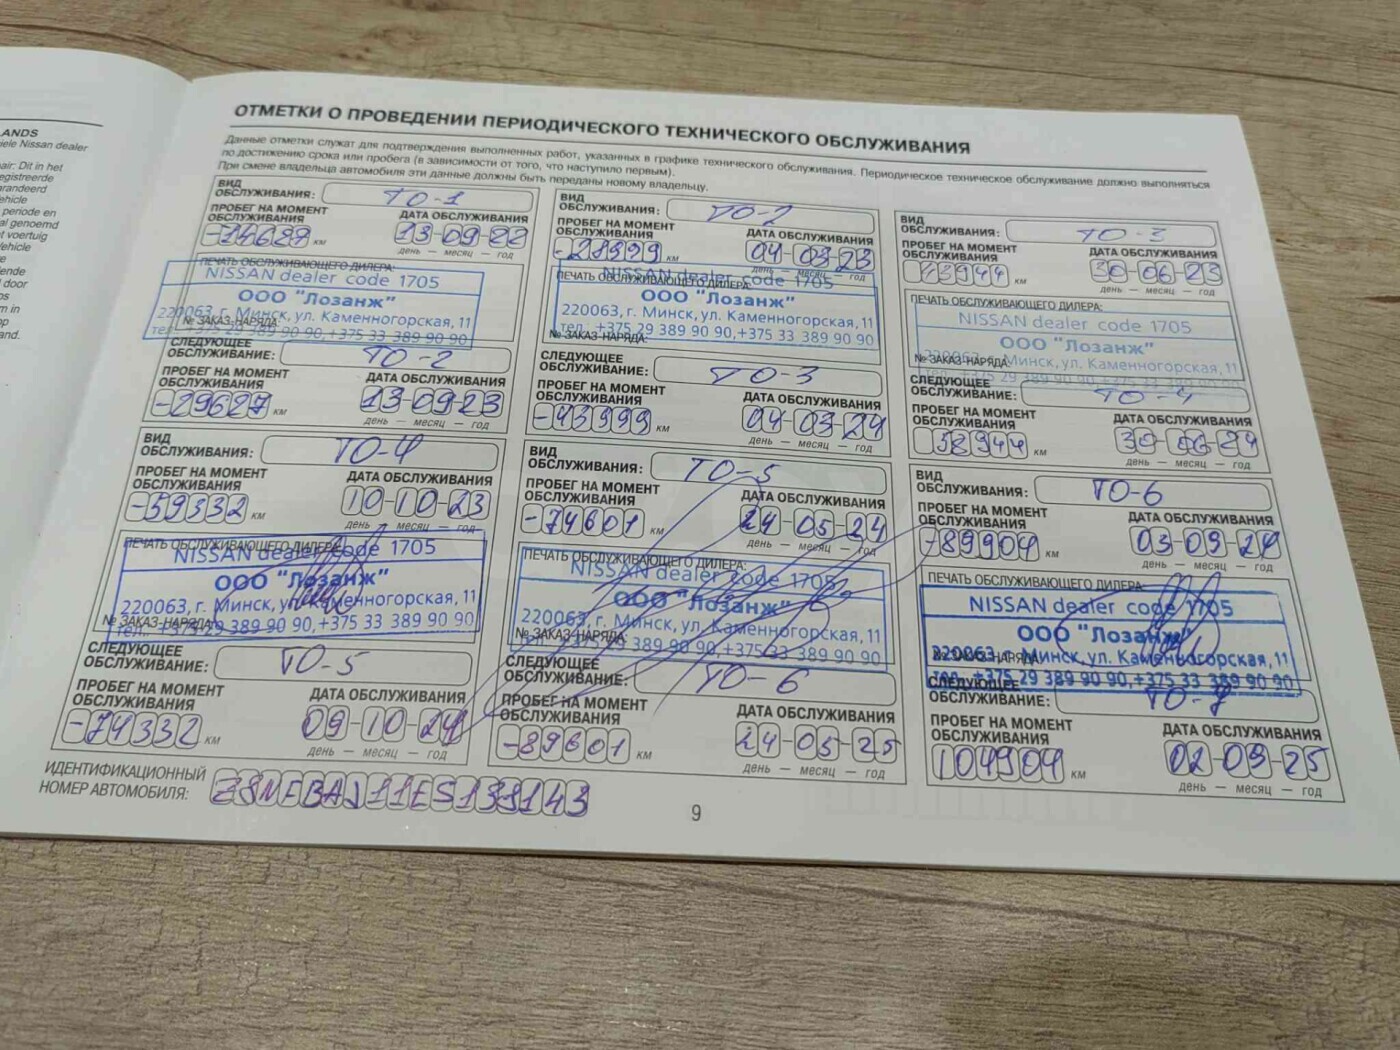 ANDS
iele Nissan dealer
air: Dit in het
egistreerde
arandeerd
ehicle
periode en
al genoemd
t voertuig
ehicle
e
ende
door
os
m in
op
and.
ОТМЕТКИ О ПРОВЕДЕНИИ ПЕРИОДИЧЕСКОГО ТЕХНИЧЕСКОГО ОБСЛУЖИВАНИЯ
Данные отметки служат для подтверждения выполненных работ, указанных в графике технического обслуживания. Периодическое техническое обслуживание должно выполняться
по достижению срока или пробега (в зависимости от того, что наступило первым).
При смене владельца автомобиля эти данные должны быть переданы новому владельцу.
ВИД ОБСЛУЖИВАНИЯ: ТО-1
ПРОБЕГ НА МОМЕНТ ОБСЛУЖИВАНИЯ
ДАТА ОБСЛУЖИВАНИЯ
-14627 км
13-09-22
ПЕЧАТЬ ОБСЛУЖИВАЮЩЕГО ДИЛЕРА:
NISSAN dealer code 1705
ООО "Лозанж"
220063, г. Минск, ул. Каменногорская, 11
№ ЗАКАЗ-НАРЯДА:
тел.: +375 29 389 90 90,+375 33 389 90 90
СЛЕДУЮЩЕЕ ОБСЛУЖИВАНИЕ: ТО-2
ПРОБЕГ НА МОМЕНТ ОБСЛУЖИВАНИЯ
ДАТА ОБСЛУЖИВАНИЯ
-29627 км
13-09-23
день — месяц — год
ВИД ОБСЛУЖИВАНИЯ: ТО-2
ПРОБЕГ НА МОМЕНТ ОБСЛУЖИВАНИЯ
ДАТА ОБСЛУЖИВАНИЯ
-28999 км
04-03-23
день — месяц — год
ПЕЧАТЬ ОБСЛУЖИВАЮЩЕГО ДИЛЕРА:
NISSAN dealer code 1705
ООО "Лозанж"
220063, г. Минск, ул. Каменногорская, 11
№ ЗАКАЗ-НАРЯДА:
тел.: +375 29 389 90 90,+375 33 389 90 90
СЛЕДУЮЩЕЕ ОБСЛУЖИВАНИЕ: ТО-3
ПРОБЕГ НА МОМЕНТ ОБСЛУЖИВАНИЯ
ДАТА ОБСЛУЖИВАНИЯ
-43999 км
04-03-24
день — месяц — год
ВИД ОБСЛУЖИВАНИЯ: ТО-3
ПРОБЕГ НА МОМЕНТ ОБСЛУЖИВАНИЯ
ДАТА ОБСЛУЖИВАНИЯ
43944 км
30-06-23
день — месяц — год
ПЕЧАТЬ ОБСЛУЖИВАЮЩЕГО ДИЛЕРА:
NISSAN dealer code 1705
ООО "Лозанж"
220063, г. Минск, ул. Каменногорская, 11
№ ЗАКАЗ-НАРЯДА:
тел.: +375 29 389 90 90,+375 33 389 90 90
СЛЕДУЮЩЕЕ ОБСЛУЖИВАНИЕ: ТО-4
ПРОБЕГ НА МОМЕНТ ОБСЛУЖИВАНИЯ
ДАТА ОБСЛУЖИВАНИЯ
58944 км
30-06-24
день — месяц — год
ВИД ОБСЛУЖИВАНИЯ: ТО-4
ПРОБЕГ НА МОМЕНТ ОБСЛУЖИВАНИЯ
ДАТА ОБСЛУЖИВАНИЯ
-59332 км
10-10-23
день — месяц — год
ПЕЧАТЬ ОБСЛУЖИВАЮЩЕГО ДИЛЕРА:
NISSAN dealer code 1705
ООО "Лозанж"
220063, г. Минск, ул. Каменногорская, 11
№ ЗАКАЗ-НАРЯДА:
тел.: +375 29 389 90 90,+375 33 389 90 90
СЛЕДУЮЩЕЕ ОБСЛУЖИВАНИЕ: ТО-5
ПРОБЕГ НА МОМЕНТ ОБСЛУЖИВАНИЯ
ДАТА ОБСЛУЖИВАНИЯ
-74332 км
09-10-24
день — месяц — год
ВИД ОБСЛУЖИВАНИЯ: ТО-5
ПРОБЕГ НА МОМЕНТ ОБСЛУЖИВАНИЯ
ДАТА ОБСЛУЖИВАНИЯ
-74601 км
24-05-24
день — месяц — год
ПЕЧАТЬ ОБСЛУЖИВАЮЩЕГО ДИЛЕРА:
NISSAN dealer code 1705
ООО "Лозанж"
220063, г. Минск, ул. Каменногорская, 11
№ ЗАКАЗ-НАРЯДА:
тел.: +375 29 389 90 90,+375 33 389 90 90
СЛЕДУЮЩЕЕ ОБСЛУЖИВАНИЕ: ТО-6
ПРОБЕГ НА МОМЕНТ ОБСЛУЖИВАНИЯ
ДАТА ОБСЛУЖИВАНИЯ
-89601 км
24-05-25
день — месяц — год
ВИД ОБСЛУЖИВАНИЯ: ТО-6
ПРОБЕГ НА МОМЕНТ ОБСЛУЖИВАНИЯ
ДАТА ОБСЛУЖИВАНИЯ
-89904 км
03-09-24
день — месяц — год
ПЕЧАТЬ ОБСЛУЖИВАЮЩЕГО ДИЛЕРА:
NISSAN dealer code 1705
ООО "Лозанж"
220063, г. Минск, ул. Каменногорская, 11
№ ЗАКАЗ-НАРЯДА:
тел.: +375 29 389 90 90,+375 33 389 90 90
СЛЕДУЮЩЕЕ ОБСЛУЖИВАНИЕ: ТО-7
ПРОБЕГ НА МОМЕНТ ОБСЛУЖИВАНИЯ
ДАТА ОБСЛУЖИВАНИЯ
104904 км
02-09-25
день — месяц — год
ИДЕНТИФИКАЦИОННЫЙ НОМЕР АВТОМОБИЛЯ: Z8NFBAJ11ES131143
9